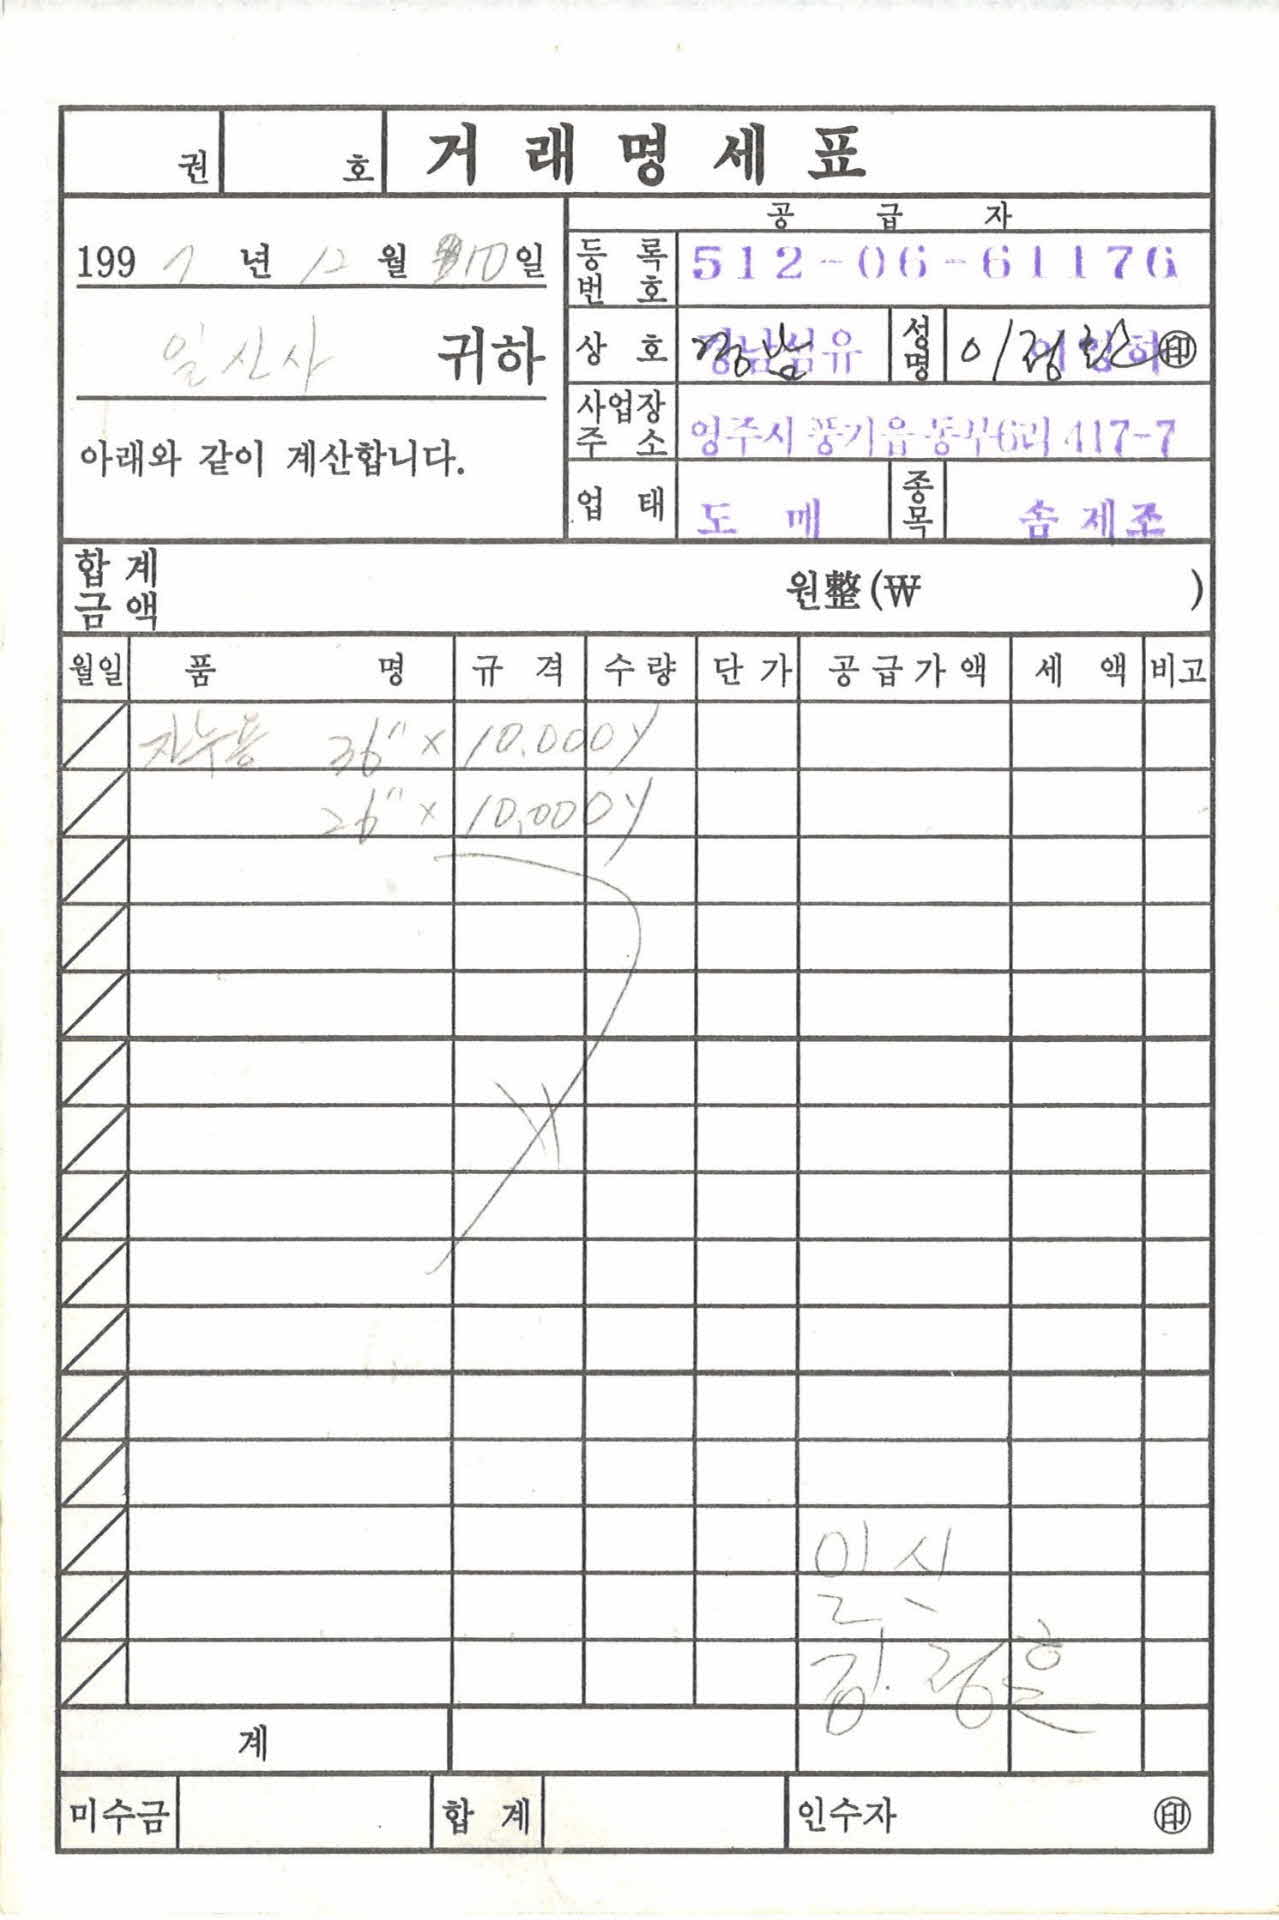 권 호 거래명세표
공급자
1997년 12월 10일
등록번호 512-06-61176
일신사 귀하
상호 경남섬유 성명 이정 ㊞
사업장주소 영주시 풍기읍 동부6리 417-7
아래와 같이 계산합니다.
업태 도매 종목 솜제조
합계금액 원整(₩ )
월일 품명 규격 수량 단가 공급가액 세액 비고
자누용 36" x 10.000y
26" x 10,000y
일신
김.정훈
계
미수금 합계 인수자 ㊞